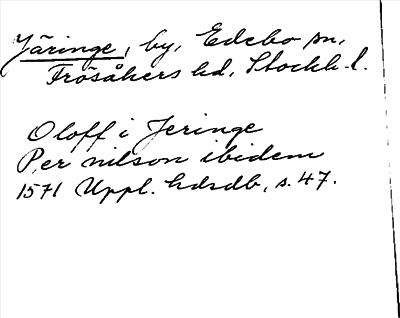 Järinge, by, Edebo sn,
Frösåkers hd, Stockh. l.
Oloff i Jeringe
Per nilson ibidem
1571 Uppl. hdsdb, s. 47.